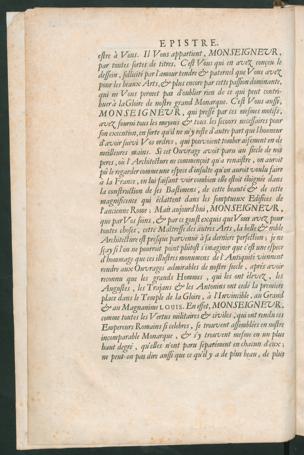 EPISTRE.
estre à Vous. Il Vous appartient, MONSEIGNEUR,
par toutes sortes de titres. C'est Vous qui en avez conçeu le
dessein, sollicité par l'amour tendre & paternel que Vous avez
pour les beaux Arts, & plus encore par cette passion dominante,
qui ne Vous permet pas d'oublier rien de ce qui peut contri-
buer à la Gloire de nostre grand Monarque. C'est Vous aussi,
MONSEIGNEUR, qui pressé par ces mesmes motifs,
avez fourni tous les moyens & tous les secours necessaires pour
son execution, en sorte qu'il ne m'y reste d'autre part que l'honneur
d'avoir suivi Vos ordres, qui pouvoient tomber aisément en de
meilleures mains. Si cet Ouvrage avoit paru au siecle de nos
peres, où l'Architecture ne commençoit qu'à renaistre, on auroit
pû le regarder comme une espece d'insulte qu'on auroit voulu faire
à la France, en lui faisant voir combien elle estoit éloignée dans
la construction de ses Bastimens, de cette beauté & de cette
magnificence qui éclattent dans les somptueux Edifices de
l'ancienne Rome: Mais aujourd'hui, MONSEIGNEUR,
que par Vos soins, & par ce goust exquis que Vous avez pour
toutes choses, cette Maistresse des autres Arts, la belle & noble
Architecture est presque parvenuë à sa derniere perfection; je ne
sçay si l'on ne pourroit point plûtost s'imaginer que c'est une espece
d'hommage que ces illustres monumens de l'Antiquité viennent
rendre aux Ouvrages admirables de nostre siecle, aprés avoir
reconnu que les grands Hommes, qui les ont élevez, les
Augustes, les Trajans & les Antonins ont cedé la premiere
place dans le Temple de la Gloire, à l'Invincible, au Grand
& au Magnanime LOUIS. En effet, MONSEIGNEUR,
comme toutes les Vertus militaires & civiles, qui ont rendu ces
Empereurs Romains si celebres, se trouvent assemblées en nostre
incomparable Monarque, & s'y trouvent mesme en un plus
haut degré, qu'elles n'ont paru separément en chacun d'eux;
ne peut-on pas dire aussi que ce qu'il y a de plus beau, de plus